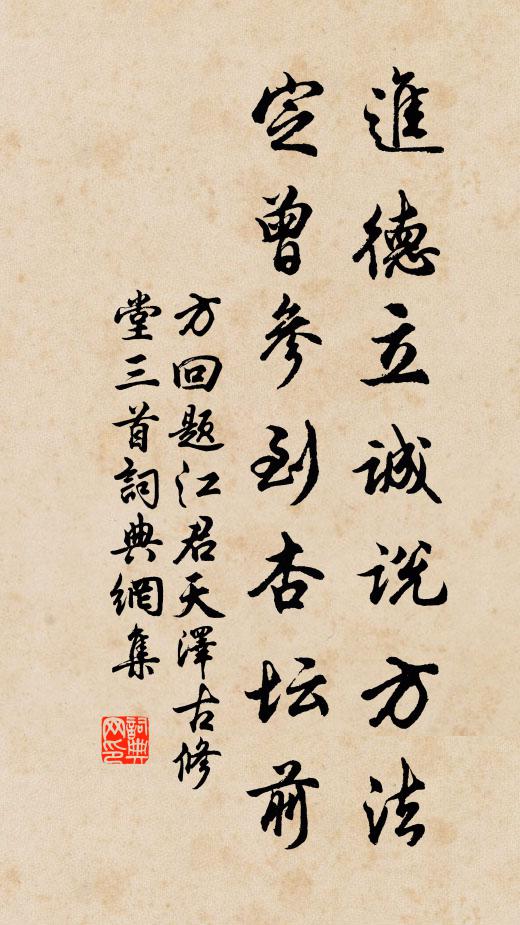 進德立诚説方法
定曾參到杏坛前
方回题江君天澤古修
堂三首詞典網集
詞典网印